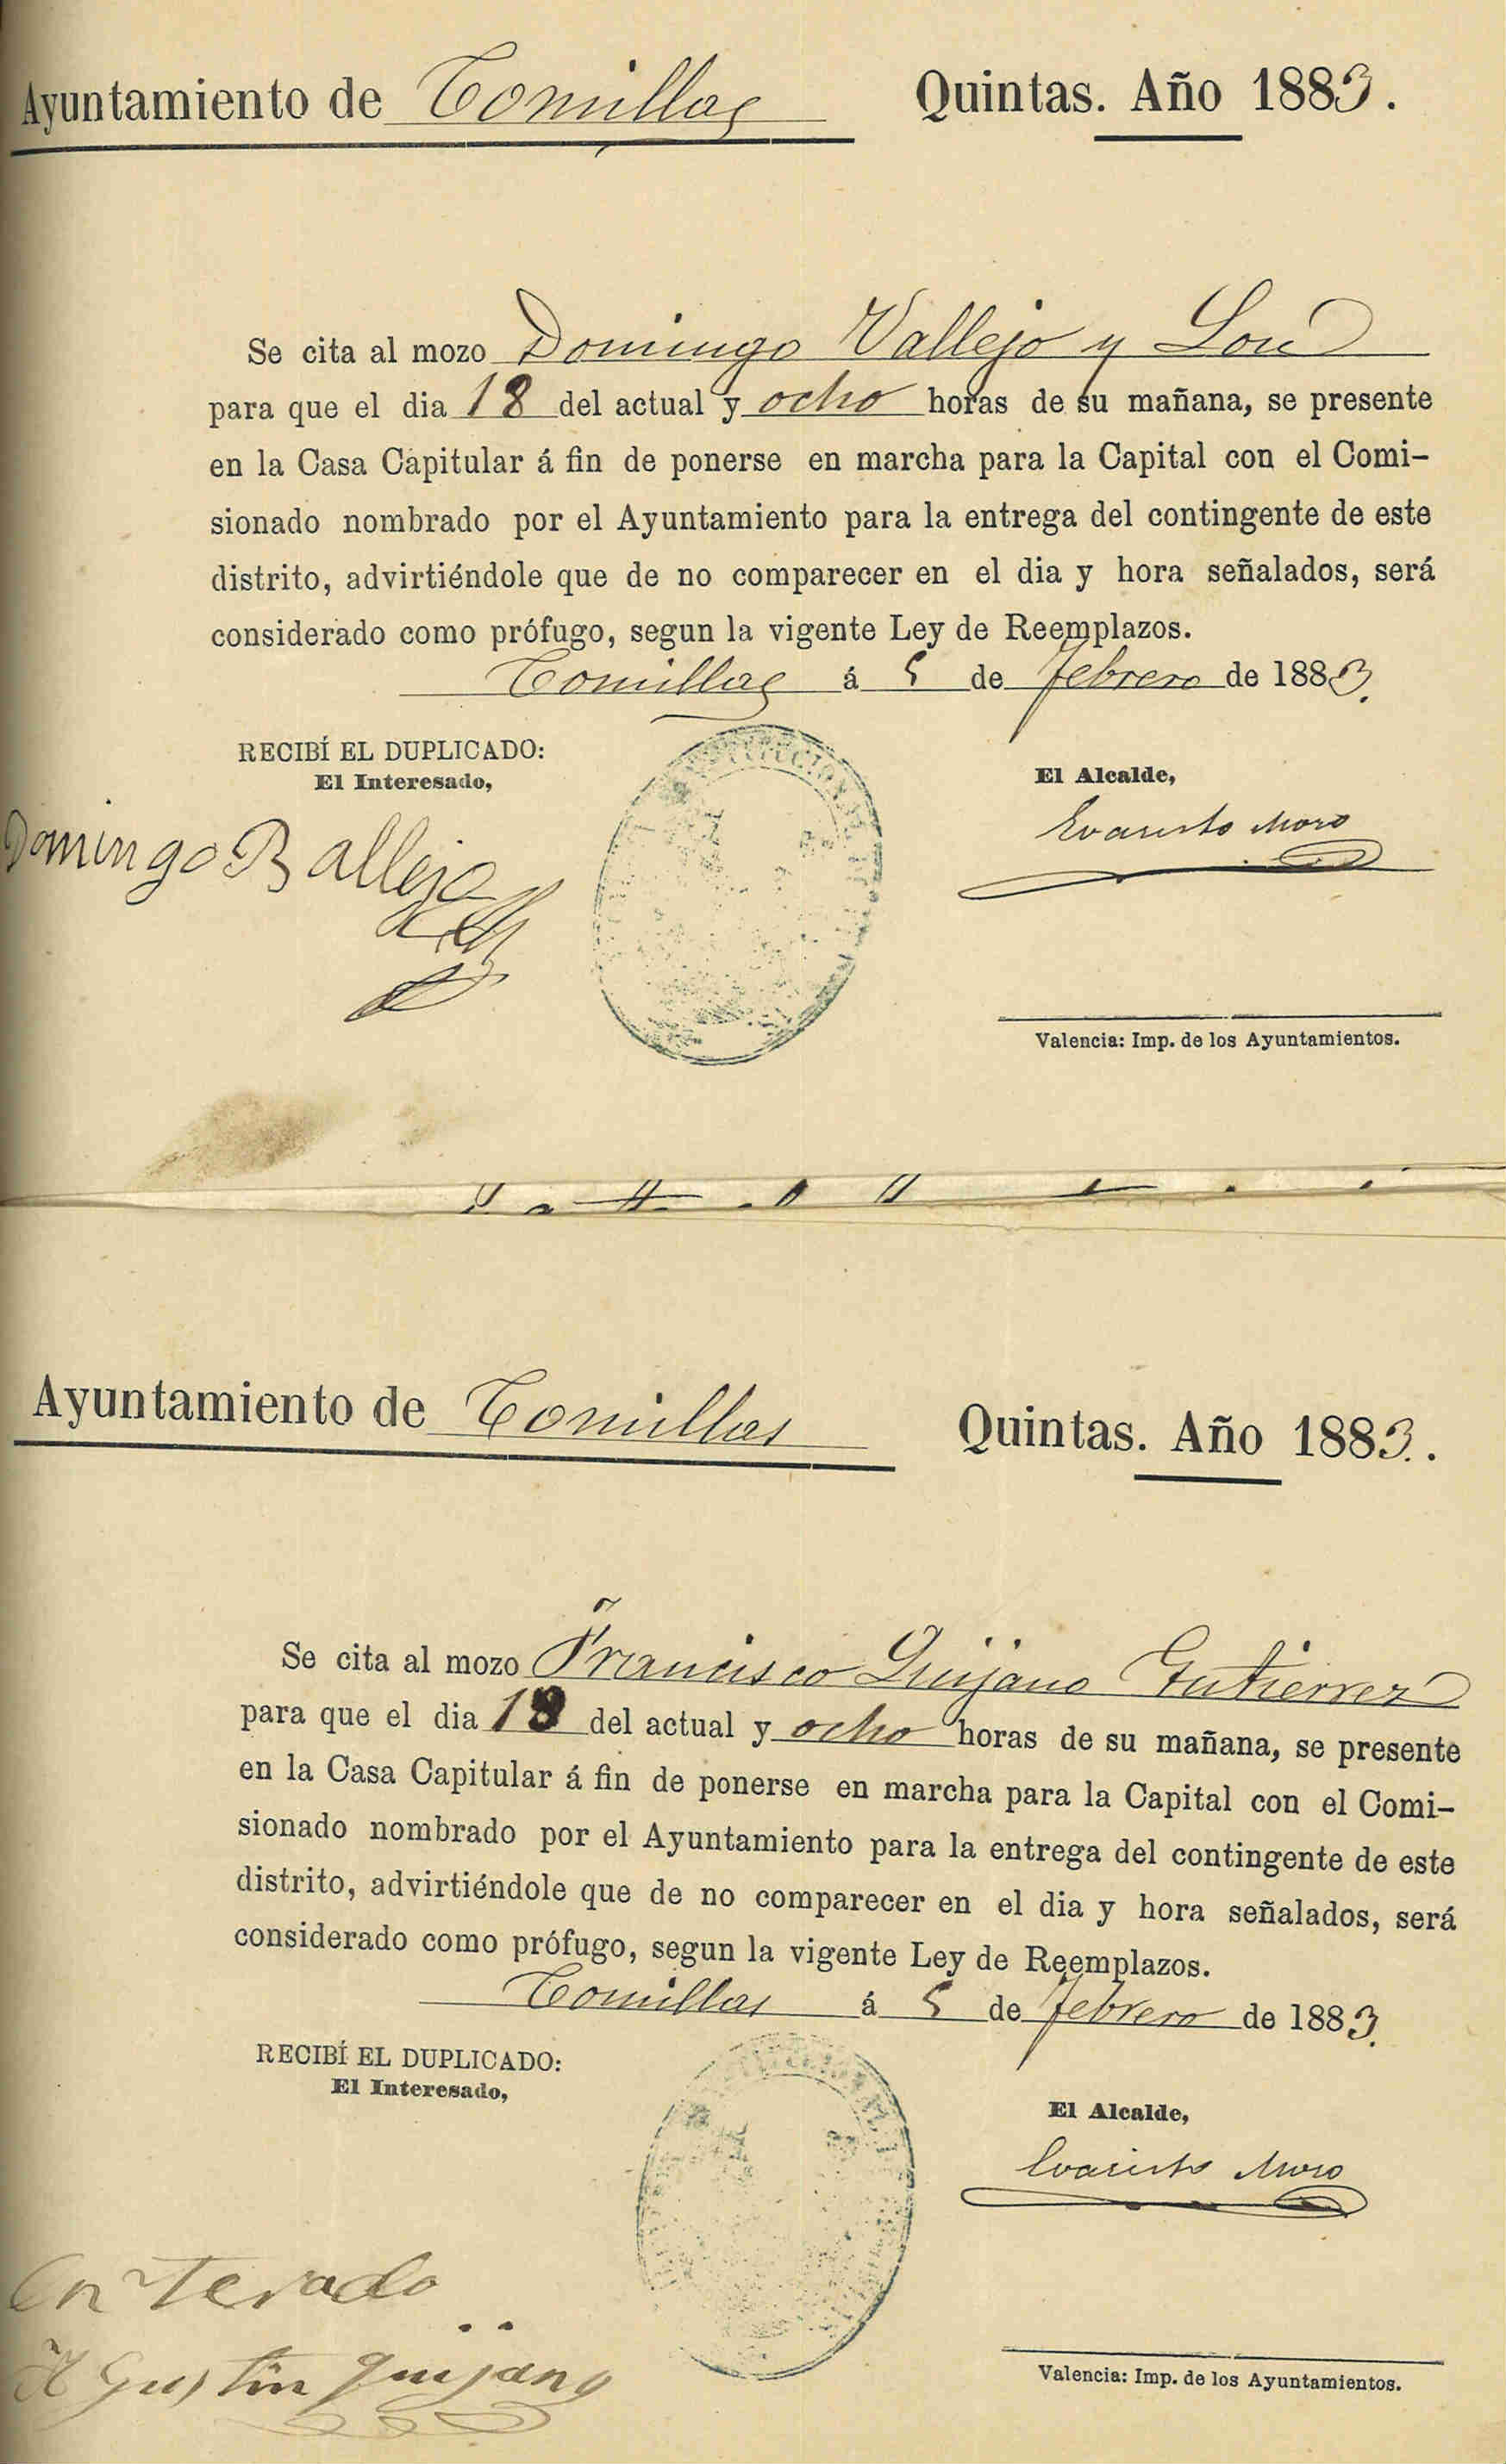 Ayuntamiento de Comillas Quintas. Año 1883.
Se cita al mozo Domingo Vallejo y
para que el dia 18 del actual y ocho horas de su mañana, se presente
en la Casa Capitular á fin de ponerse en marcha para la Capital con el Comi-
sionado nombrado por el Ayuntamiento para la entrega del contingente de este
distrito, advirtiéndole que de no comparecer en el dia y hora señalados, será
considerado como prófugo, segun la vigente Ley de Reemplazos.
Comillas á 5 de febrero de 1883.
RECIBÍ EL DUPLICADO:
El Interesado,
El Alcalde,
Evaristo Moro
Domingo Ballejo
Valencia: Imp. de los Ayuntamientos.
Ayuntamiento de Comillas Quintas. Año 1883.
Se cita al mozo Francisco Quijano Gutierrez
para que el dia 18 del actual y ocho horas de su mañana, se presente
en la Casa Capitular á fin de ponerse en marcha para la Capital con el Comi-
sionado nombrado por el Ayuntamiento para la entrega del contingente de este
distrito, advirtiéndole que de no comparecer en el dia y hora señalados, será
considerado como prófugo, segun la vigente Ley de Reemplazos.
Comillas á 5 de febrero de 1883.
RECIBÍ EL DUPLICADO:
El Interesado,
El Alcalde,
Evaristo Moro
Enterado
Agustin Quijano
Valencia: Imp. de los Ayuntamientos.